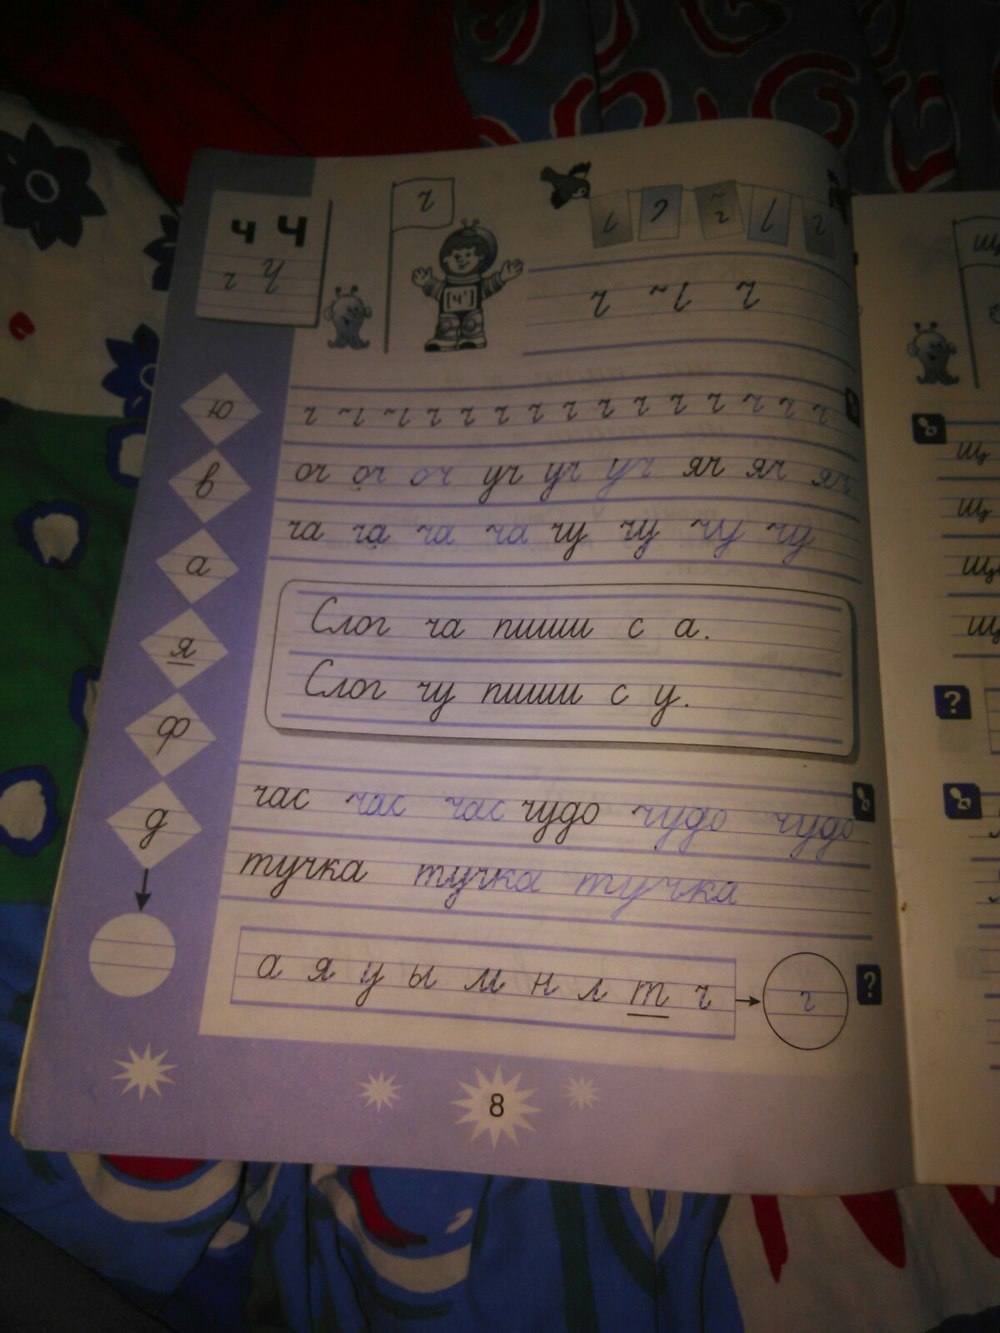 ч Ч
ч Ч
ч
[ч']
ч ч ч
ю
ч ч ч ч ч ч ч ч ч ч ч ч ч ч ч
в
оч оч оч уч уч уч яч яч яч
ча ча ча ча чу чу чу чу
а
Слог ча пиши с а.
я
Слог чу пиши с у.
ф
час час час чудо чудо чудо
д
тучка тучка тучка
а я у ы м н л т ч
ч
?
8
Щ
Щ
Щ
Щ
Щ
?